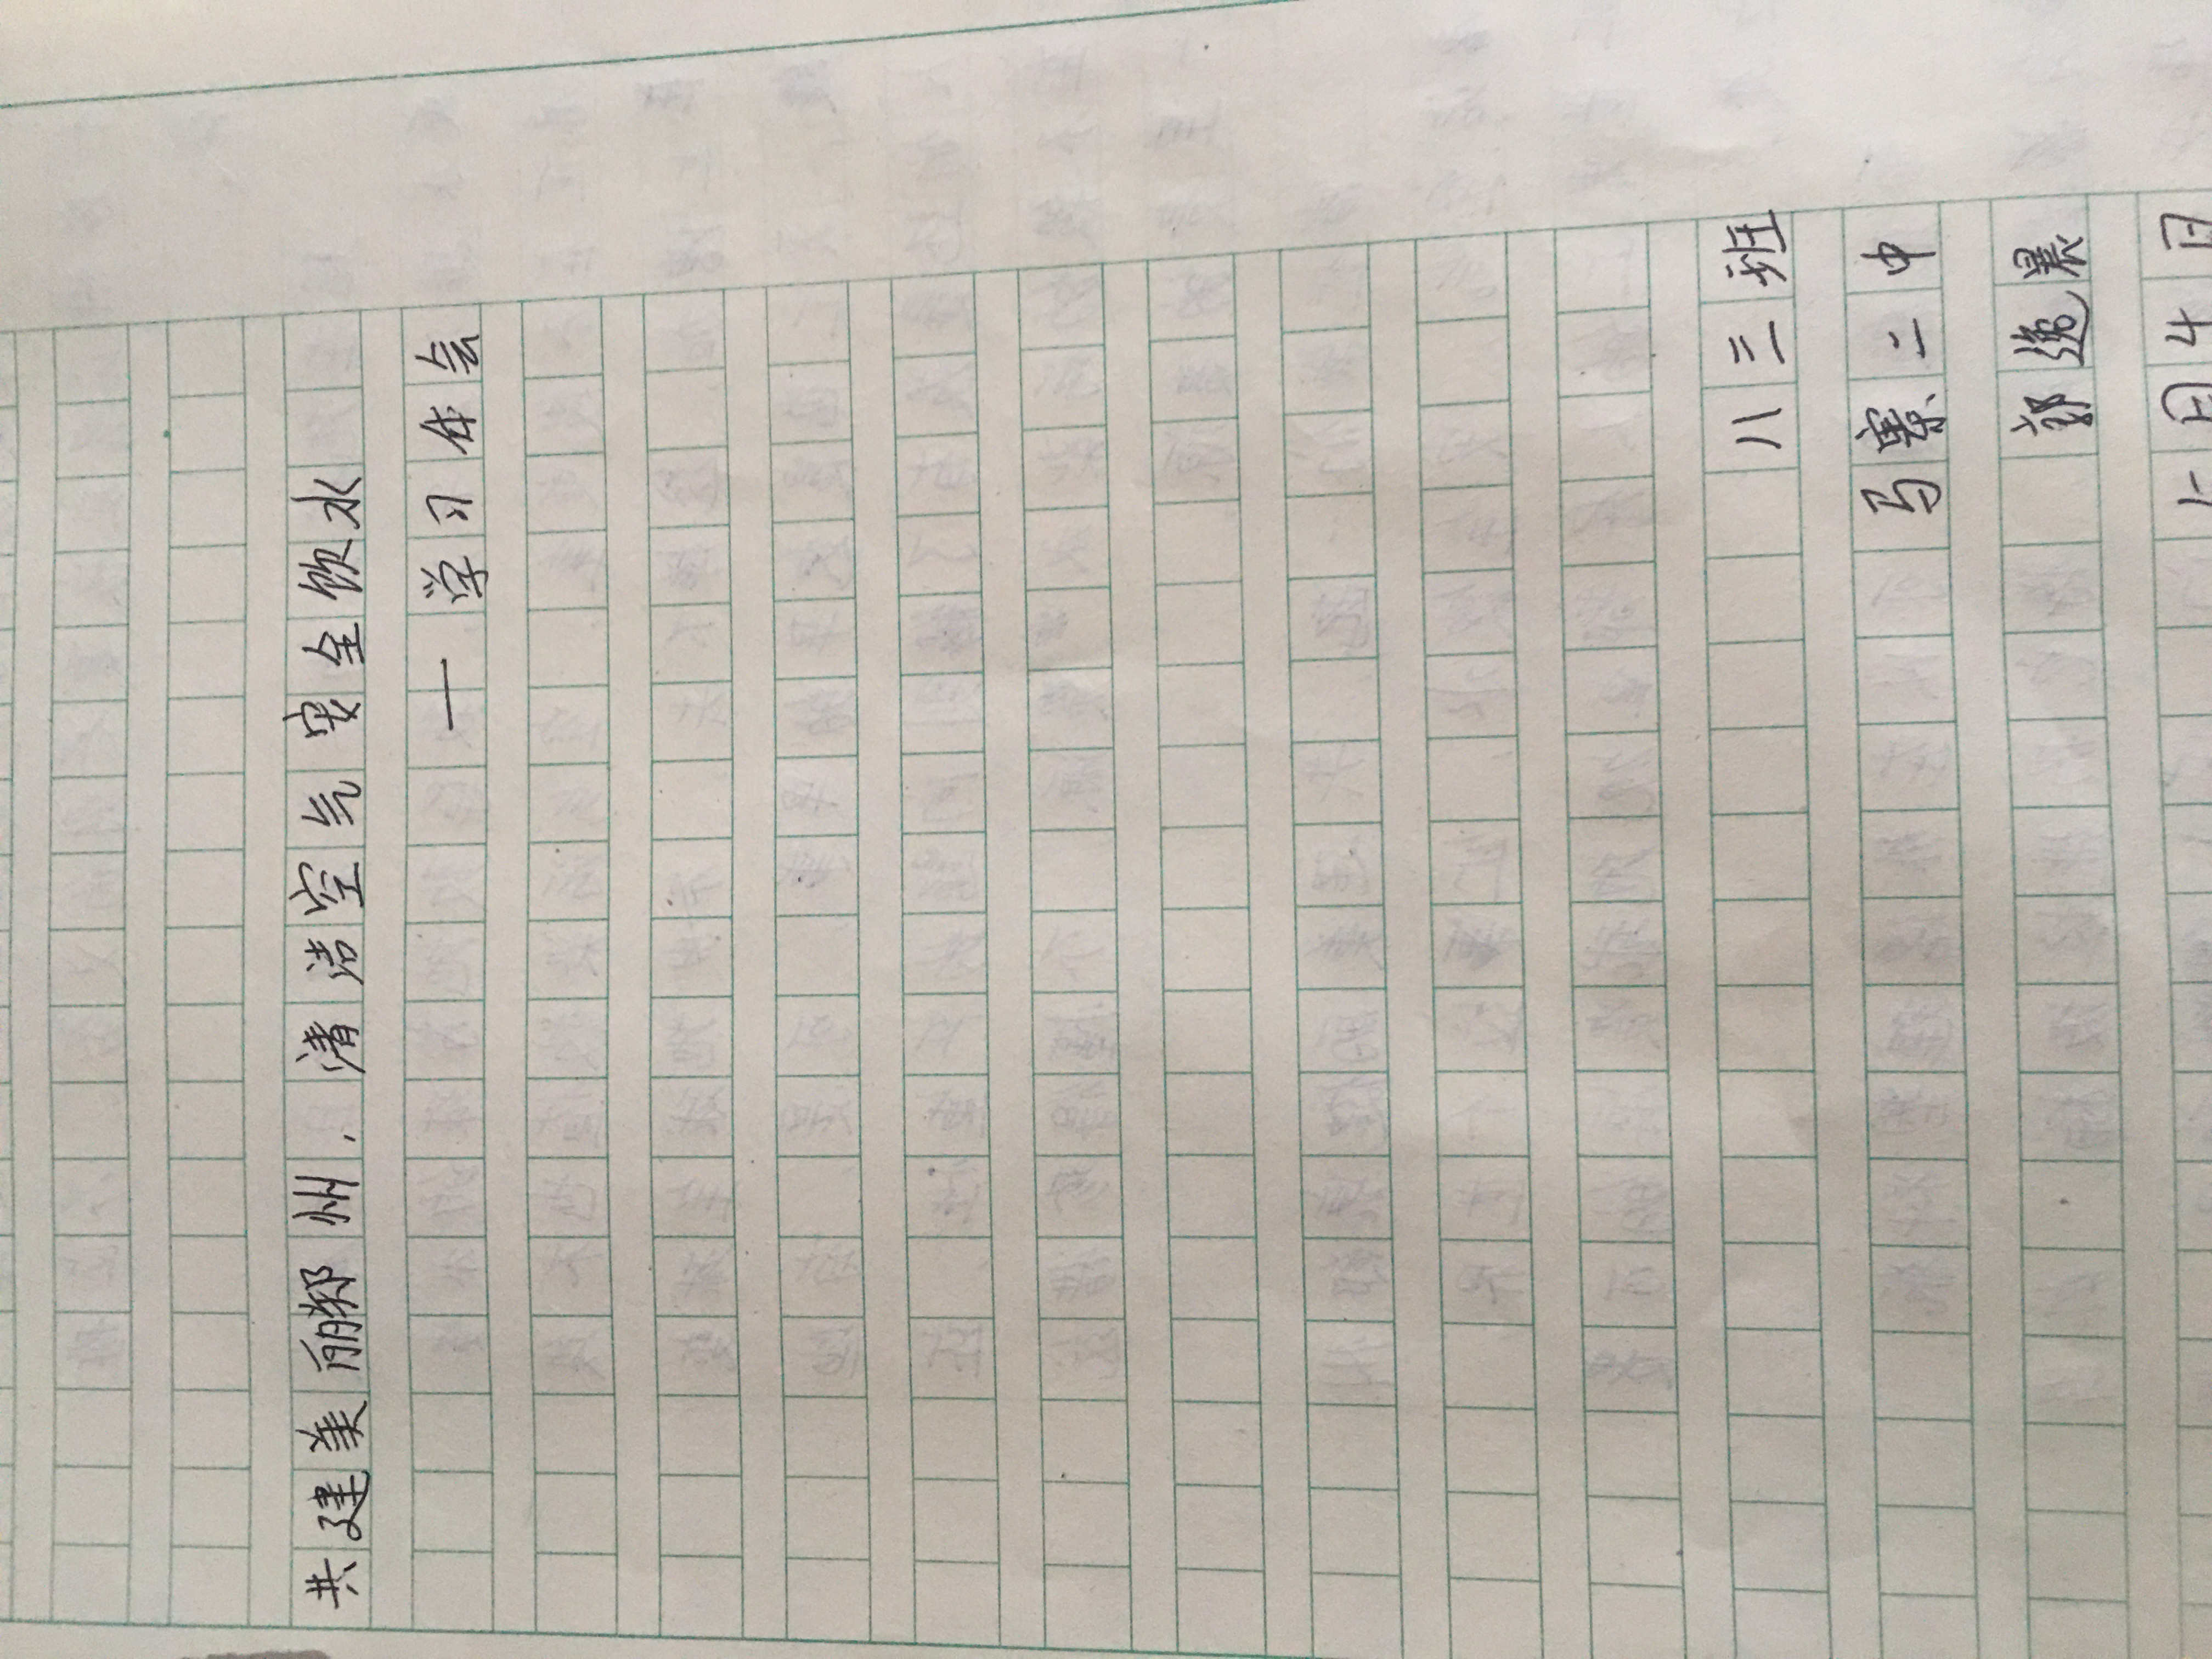 共建美丽郑州.清洁空气安全饮水
—学习体会
八三班
马寨二中
郭逸晨
月4日